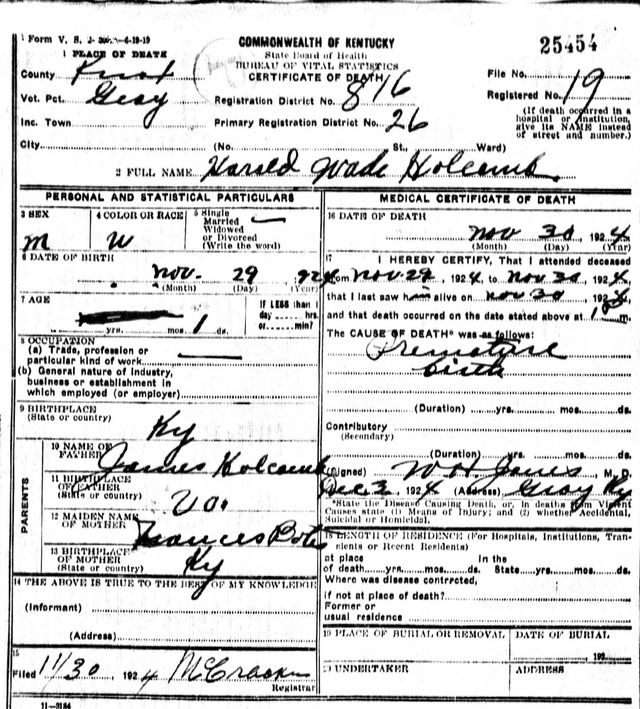 Form V. S.
COMMONWEALTH OF KENTUCKY
25454
1 PLACE OF DEATH
State Board of Health
BUREAU OF VITAL STATISTICS
CERTIFICATE OF DEATH
County Knox
File No. 19
Vot. Pct. Gray
Registration District No. 816
Registered No.
Inc. Town
Primary Registration District No. 26
(If death occurred in a hospital or institution, give its NAME instead of street and number.)
City (No. St., Ward)
2 FULL NAME Harold Wade Holcomb
PERSONAL AND STATISTICAL PARTICULARS
3 SEX M
4 COLOR OR RACE W
5 Single Married Widowed or Divorced (Write the word)
6 DATE OF BIRTH
Nov. 29 924
(Month) (Day) (Year)
7 AGE
yrs. mos. 1 ds.
If LESS than 1 day hrs. or min?
8 OCCUPATION
(a) Trade, profession or particular kind of work
(b) General nature of industry, business or establishment in which employed (or employer)
9 BIRTHPLACE
(State or country) Ky
PARENTS
10 NAME OF FATHER James Holcomb
11 BIRTHPLACE OF FATHER
(State or country) Va.
12 MAIDEN NAME OF MOTHER Frances
13 BIRTHPLACE OF MOTHER
(State or country) Ky
14 THE ABOVE IS TRUE TO THE BEST OF MY KNOWLEDGE
(Informant)
(Address)
15
Filed 11/30, 1924 McCracken
Registrar
11-3184
MEDICAL CERTIFICATE OF DEATH
16 DATE OF DEATH
Nov 30 1924
(Month) (Day) (Year)
17 I HEREBY CERTIFY, That I attended deceased
from Nov 29, 1924, to Nov 30, 1924
that I last saw him alive on Nov 30, 1924
and that death occurred on the date stated above at m
The CAUSE OF DEATH* was as follows:
Premature
birth
(Duration) yrs. mos. ds.
Contributory
(Secondary)
(Duration) yrs. mos. ds.
(Signed) W H Jones M. D.
Dec 2, 1924 (Address) Gray Ky
*State the Disease Causing Death, or, in deaths from Violent Causes state (1) Means of Injury; and (2) whether Accidental, Suicidal or Homicidal.
18 LENGTH OF RESIDENCE (For Hospitals, Institutions, Transients or Recent Residents)
at place of death yrs. mos. ds. In the State yrs. mos. ds.
Where was disease contracted, if not at place of death?
Former or usual residence
19 PLACE OF BURIAL OR REMOVAL
DATE OF BURIAL
192
20 UNDERTAKER
ADDRESS